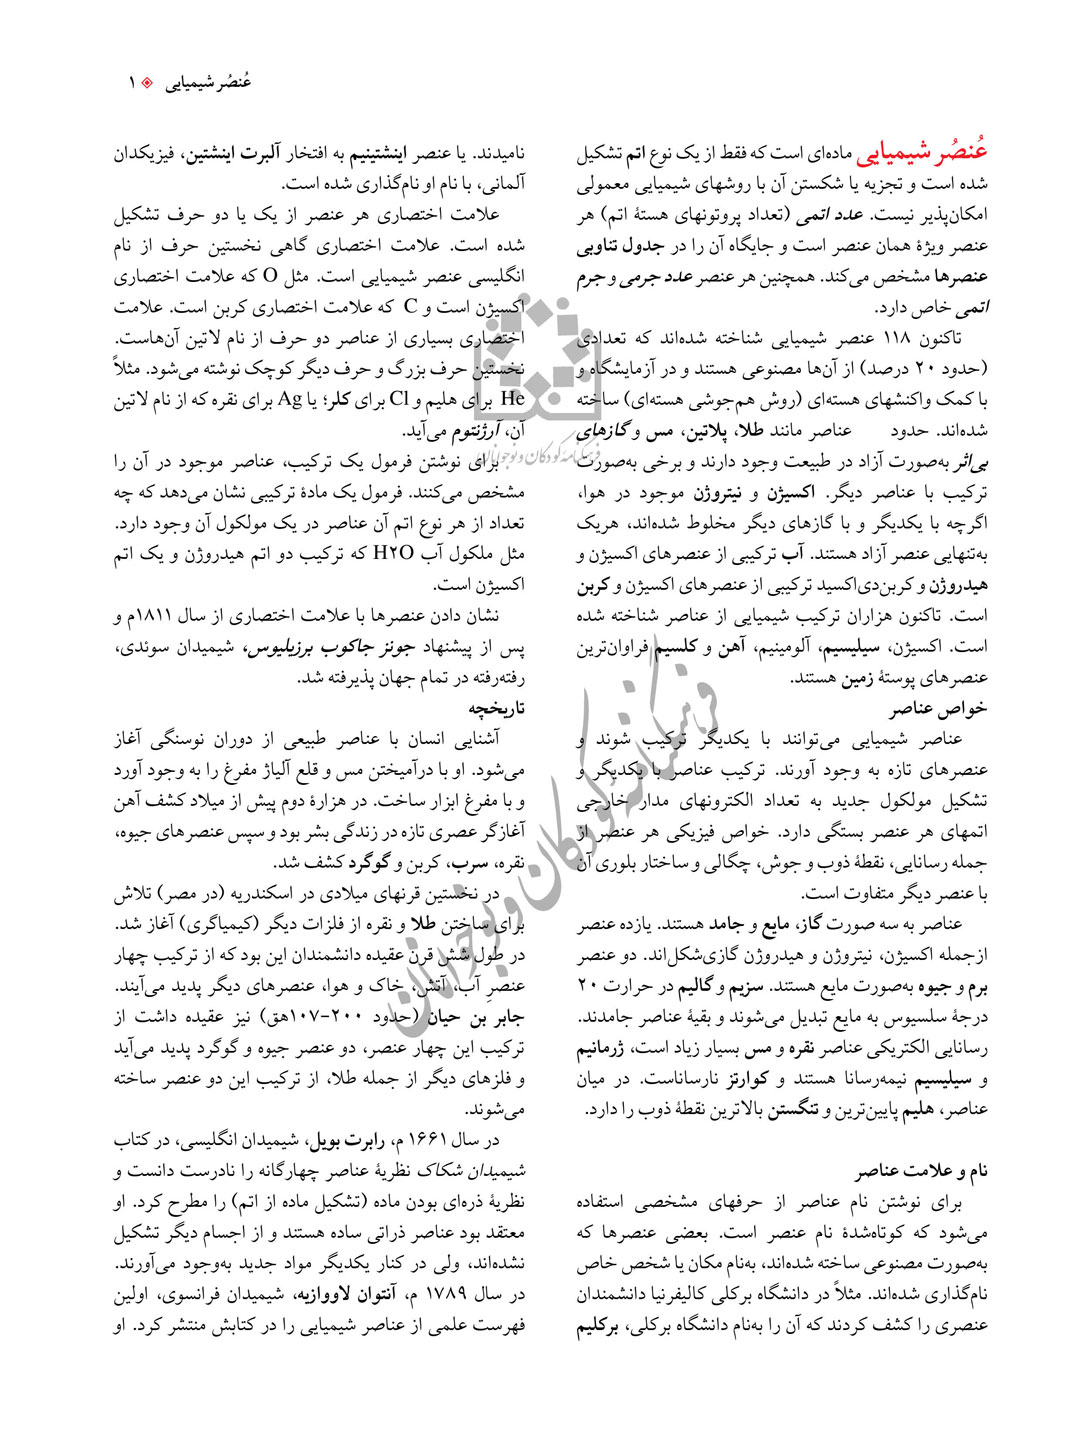 عُنصُر شیمیایی ۱
عُنصُر شیمیایی ماده‌ای است که فقط از یک نوع اتم تشکیل
شده است و تجزیه یا شکستن آن با روشهای شیمیایی معمولی
امکان‌پذیر نیست. عدد اتمی (تعداد پروتونهای هستهٔ اتم) هر
عنصر ویژهٔ همان عنصر است و جایگاه آن را در جدول تناوبی
عنصرها مشخص می‌کند. همچنین هر عنصر عدد جرمی و جرم
اتمی خاص دارد.
تاکنون ۱۱۸ عنصر شیمیایی شناخته شده‌اند که تعدادی
(حدود ۲۰ درصد) از آن‌ها مصنوعی هستند و در آزمایشگاه و
با کمک واکنشهای هسته‌ای (روش هم‌جوشی هسته‌ای) ساخته
شده‌اند. حدود عناصر مانند طلا، پلاتین، مس و گازهای
بی‌اثر به‌صورت آزاد در طبیعت وجود دارند و برخی به‌صورت
ترکیب با عناصر دیگر. اکسیژن و نیتروژن موجود در هوا،
اگرچه با یکدیگر و با گازهای دیگر مخلوط شده‌اند، هریک
به‌تنهایی عنصر آزاد هستند. آب ترکیبی از عنصرهای اکسیژن و
هیدروژن و کربن‌دی‌اکسید ترکیبی از عنصرهای اکسیژن و کربن
است. تاکنون هزاران ترکیب شیمیایی از عناصر شناخته شده
است. اکسیژن، سیلیسیم، آلومینیم، آهن و کلسیم فراوان‌ترین
عنصرهای پوستهٔ زمین هستند.
خواص عناصر
عناصر شیمیایی می‌توانند با یکدیگر ترکیب شوند و
عنصرهای تازه به وجود آورند. ترکیب عناصر با یکدیگر و
تشکیل مولکول جدید به تعداد الکترونهای مدار خارجی
اتمهای هر عنصر بستگی دارد. خواص فیزیکی هر عنصر از
جمله رسانایی، نقطهٔ ذوب و جوش، چگالی و ساختار بلوری آن
با عنصر دیگر متفاوت است.
عناصر به سه صورت گاز، مایع و جامد هستند. یازده عنصر
ازجمله اکسیژن، نیتروژن و هیدروژن گازی‌شکل‌اند. دو عنصر
برم و جیوه به‌صورت مایع هستند. سزیم و گالیم در حرارت ۲۰
درجهٔ سلسیوس به مایع تبدیل می‌شوند و بقیهٔ عناصر جامدند.
رسانایی الکتریکی عناصر نقره و مس بسیار زیاد است، ژرمانیم
و سیلیسیم نیمه‌رسانا هستند و کوارتز نارساناست. در میان
عناصر، هلیم پایین‌ترین و تنگستن بالاترین نقطهٔ ذوب را دارد.
نام و علامت عناصر
برای نوشتن نام عناصر از حرفهای مشخصی استفاده
می‌شود که کوتاه‌شدهٔ نام عنصر است. بعضی عنصرها که
به‌صورت مصنوعی ساخته شده‌اند، به‌نام مکان یا شخص خاص
نام‌گذاری شده‌اند. مثلاً در دانشگاه برکلی کالیفرنیا دانشمندان
عنصری را کشف کردند که آن را به‌نام دانشگاه برکلی، برکلیم
نامیدند. یا عنصر اینشتینیم به افتخار آلبرت اینشتین، فیزیکدان
آلمانی، با نام او نام‌گذاری شده است.
علامت اختصاری هر عنصر از یک یا دو حرف تشکیل
شده است. علامت اختصاری گاهی نخستین حرف از نام
انگلیسی عنصر شیمیایی است. مثل O که علامت اختصاری
اکسیژن است و C که علامت اختصاری کربن است. علامت
اختصاری بسیاری از عناصر دو حرف از نام لاتین آن‌هاست.
نخستین حرف بزرگ و حرف دیگر کوچک نوشته می‌شود. مثلاً
He برای هلیم و Cl برای کلر؛ یا Ag برای نقره که از نام لاتین
آن، آرژنتوم می‌آید.
برای نوشتن فرمول یک ترکیب، عناصر موجود در آن را
مشخص می‌کنند. فرمول یک مادهٔ ترکیبی نشان می‌دهد که چه
تعداد از هر نوع اتم آن عناصر در یک مولکول آن وجود دارد.
مثل ملکول آب H۲O که ترکیب دو اتم هیدروژن و یک اتم
اکسیژن است.
نشان دادن عنصرها با علامت اختصاری از سال ۱۸۱۱م و
پس از پیشنهاد جونز جاکوب برزیلیوس، شیمیدان سوئدی،
رفته‌رفته در تمام جهان پذیرفته شد.
تاریخچه
آشنایی انسان با عناصر طبیعی از دوران نوسنگی آغاز
می‌شود. او با درآمیختن مس و قلع آلیاژ مفرغ را به وجود آورد
و با مفرغ ابزار ساخت. در هزارهٔ دوم پیش از میلاد کشف آهن
آغازگر عصری تازه در زندگی بشر بود و سپس عنصرهای جیوه،
نقره، سرب، کربن و گوگرد کشف شد.
در نخستین قرنهای میلادی در اسکندریه (در مصر) تلاش
برای ساختن طلا و نقره از فلزات دیگر (کیمیاگری) آغاز شد.
در طول شش قرن عقیده دانشمندان این بود که از ترکیب چهار
عنصرِ آب، آتش، خاک و هوا، عنصرهای دیگر پدید می‌آیند.
جابر بن حیان (حدود ۲۰۰-۱۰۷هق) نیز عقیده داشت از
ترکیب این چهار عنصر، دو عنصر جیوه و گوگرد پدید می‌آید
و فلزهای دیگر از جمله طلا، از ترکیب این دو عنصر ساخته
می‌شوند.
در سال ۱۶۶۱ م، رابرت بویل، شیمیدان انگلیسی، در کتاب
شیمیدان شکاک نظریهٔ عناصر چهارگانه را نادرست دانست و
نظریهٔ ذره‌ای بودن ماده (تشکیل ماده از اتم) را مطرح کرد. او
معتقد بود عناصر ذراتی ساده هستند و از اجسام دیگر تشکیل
نشده‌اند، ولی در کنار یکدیگر مواد جدید به‌وجود می‌آورند.
در سال ۱۷۸۹ م، آنتوان لاووازیه، شیمیدان فرانسوی، اولین
فهرست علمی از عناصر شیمیایی را در کتابش منتشر کرد. او
فرهنگنامه کودکان و نوجوانان
فرهنگنامه کودکان و نوجوانان